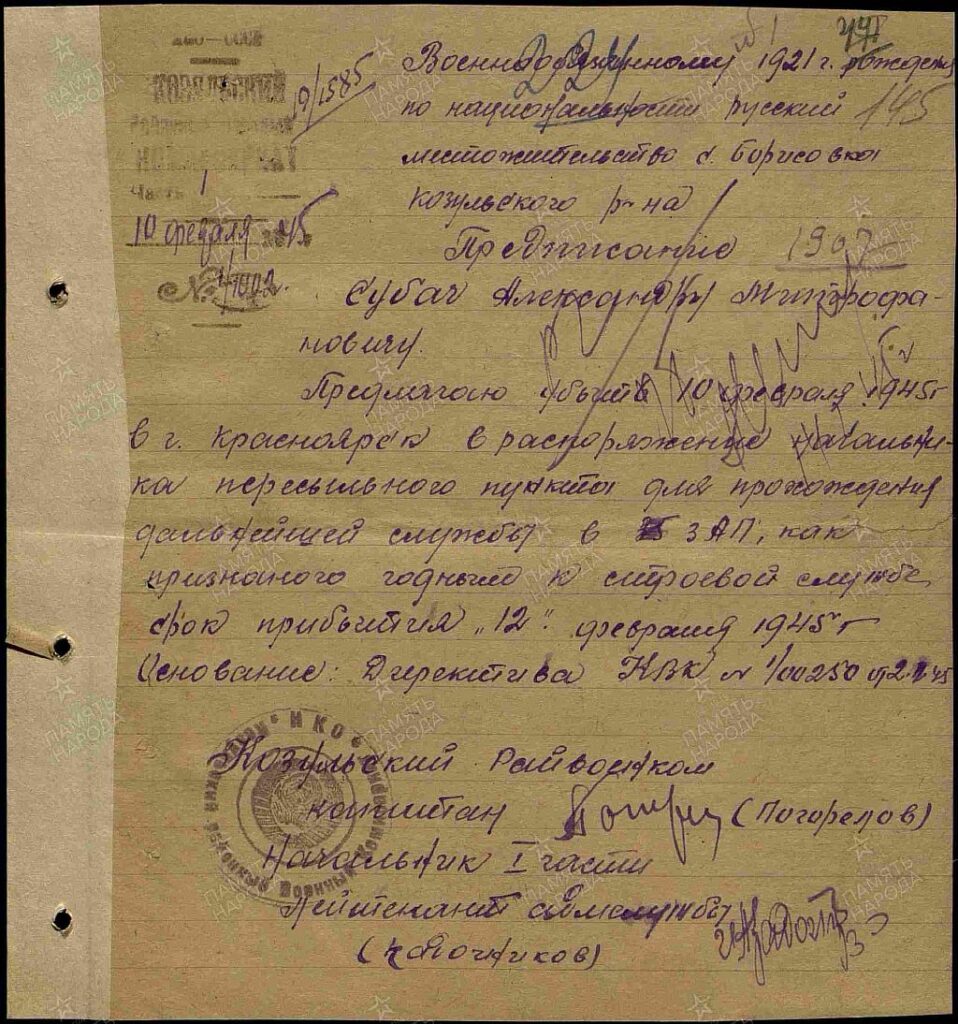 НКО–СССР
КОЗУЛЬСКИЙ
РАЙОННЫЙ ВОЕННЫЙ
КОМИССАРИАТ
Часть 1
10 февраля 1945
№ 1/1002.
19/1585
224
145
Военнообязанному 1921 г. рождения
по национальности русский
местожительство с. Борисовка
козульского р-на
Предписание 1907
Субач Александру Митрофа-
новичу.
Предлагаю убыть 10 февраля 1945 г
в г. Красноярск в распоряжение начальни-
ка пересыльного пункта для прохождения
дальнейшей службы в ЗАП, как
признаного годным к строевой службе,
срок прибытия „12" февраля 1945 г
Основание: Директива КВК № 1/00250 от 2. 45
Козульский Райвоенком
капитан (Погорелов)
Начальник I части
Лейтенант адмслужбы
НКО
ПАМЯТЬ НАРОДА